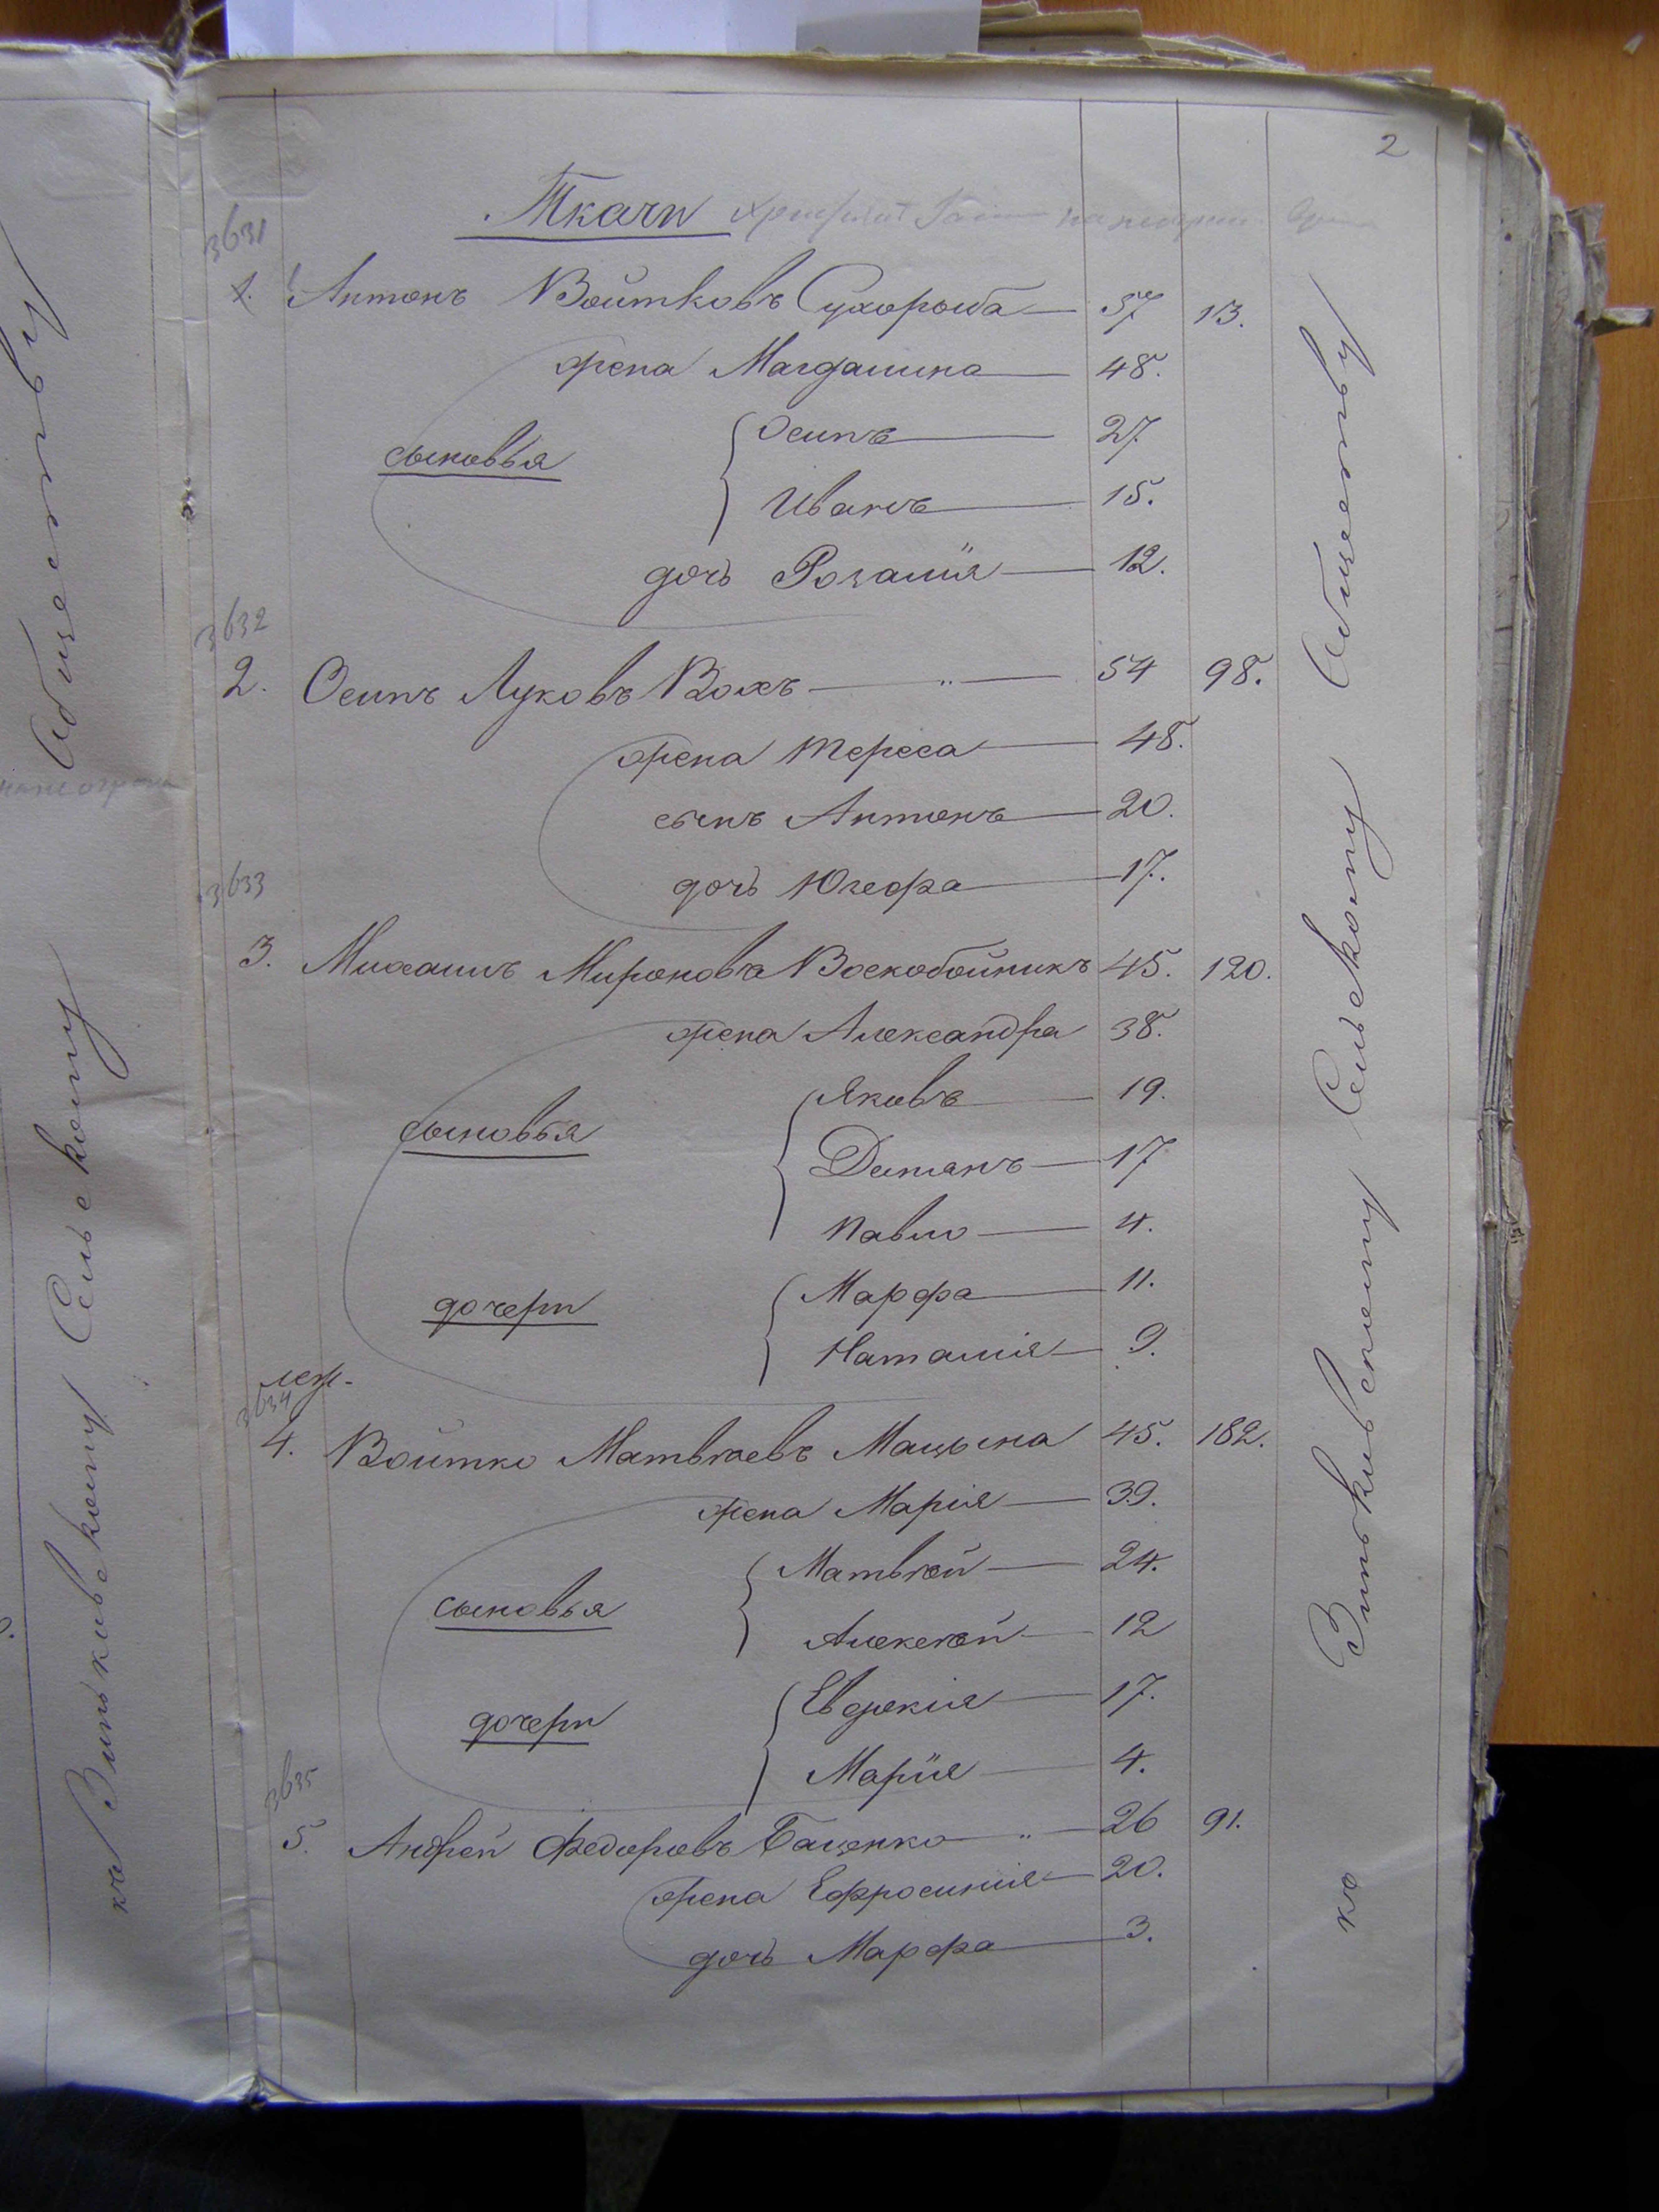 2
Ткачи
3631
1. Антонъ Войтковъ Сухорыба 57 113.
жена Магдалина 48.
сыновья
Осипъ 27.
Иванъ 15.
дочь Розалия 12.
3632
2. Осипъ Луковъ Волъ 54 98.
жена Тереса 48.
сынъ Антонъ 20.
дочь Юзефа 17.
3633
3. Михаилъ Мироновъ Воскобойникъ 45. 120.
жена Александра 38.
сыновья
Яковъ 19.
Демянъ 17
Павло 4.
дочери
Марфа 11.
Наталія 9.
3634
4. Войтко Матвѣевъ Мацына 45. 182.
жена Марія 39.
сыновья
Матвѣй 24.
Алексѣй 12
дочери
Евдокія 17.
Марія 4.
3635
5. Андрей Федоровъ Баценко 26 91.
жена Ефросинія 20.
дочь Марфа 3.
ко Зиньковскому Сельскому Обществу
ко Зиньковскому Сельскому Обществу